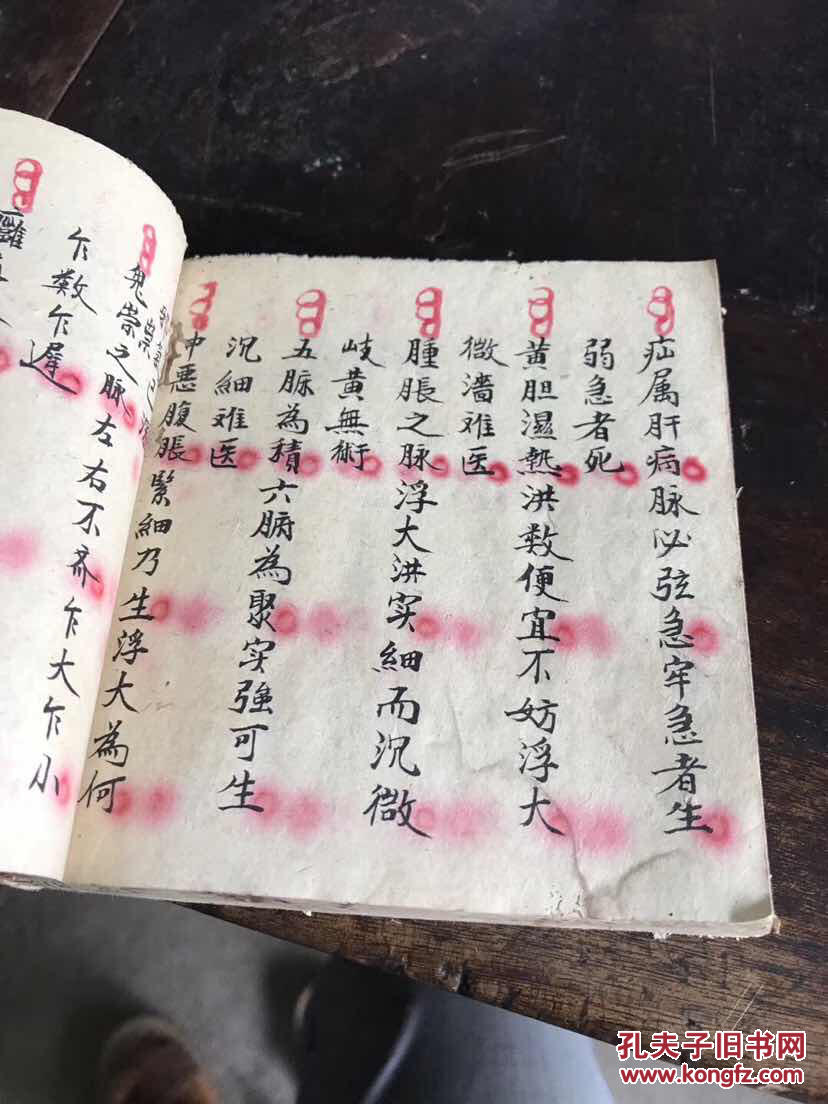 疝属肝病脉必弦急牢急者生
弱急者死
黄胆濕热洪数便宜不妨浮大
微濇难医
腫脹之脉浮大洪实細而沉微
岐黄無術
五脈為積六腑為聚实強可生
沉細难医
中悪腹脹緊細乃生浮大為何
鬼祟之脉左右不齐乍大乍小
乍数乍遲
孔夫子旧书网
www.kongfz.com